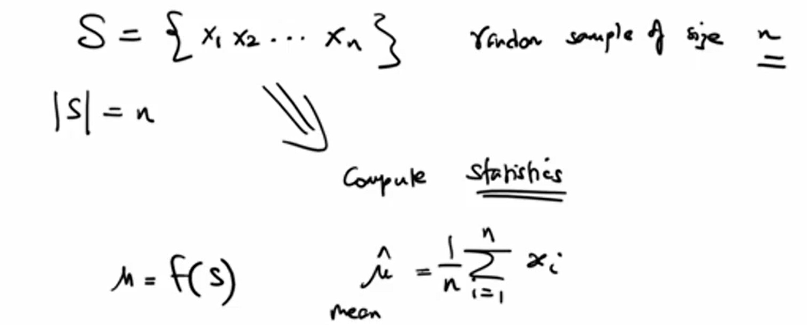 S = { x₁ x₂ ... xₙ } random sample of size n
|S| = n
Compute statistics
μ = f(s) μ̂ = 1/n Σᵢ₌₁ⁿ xᵢ
mean